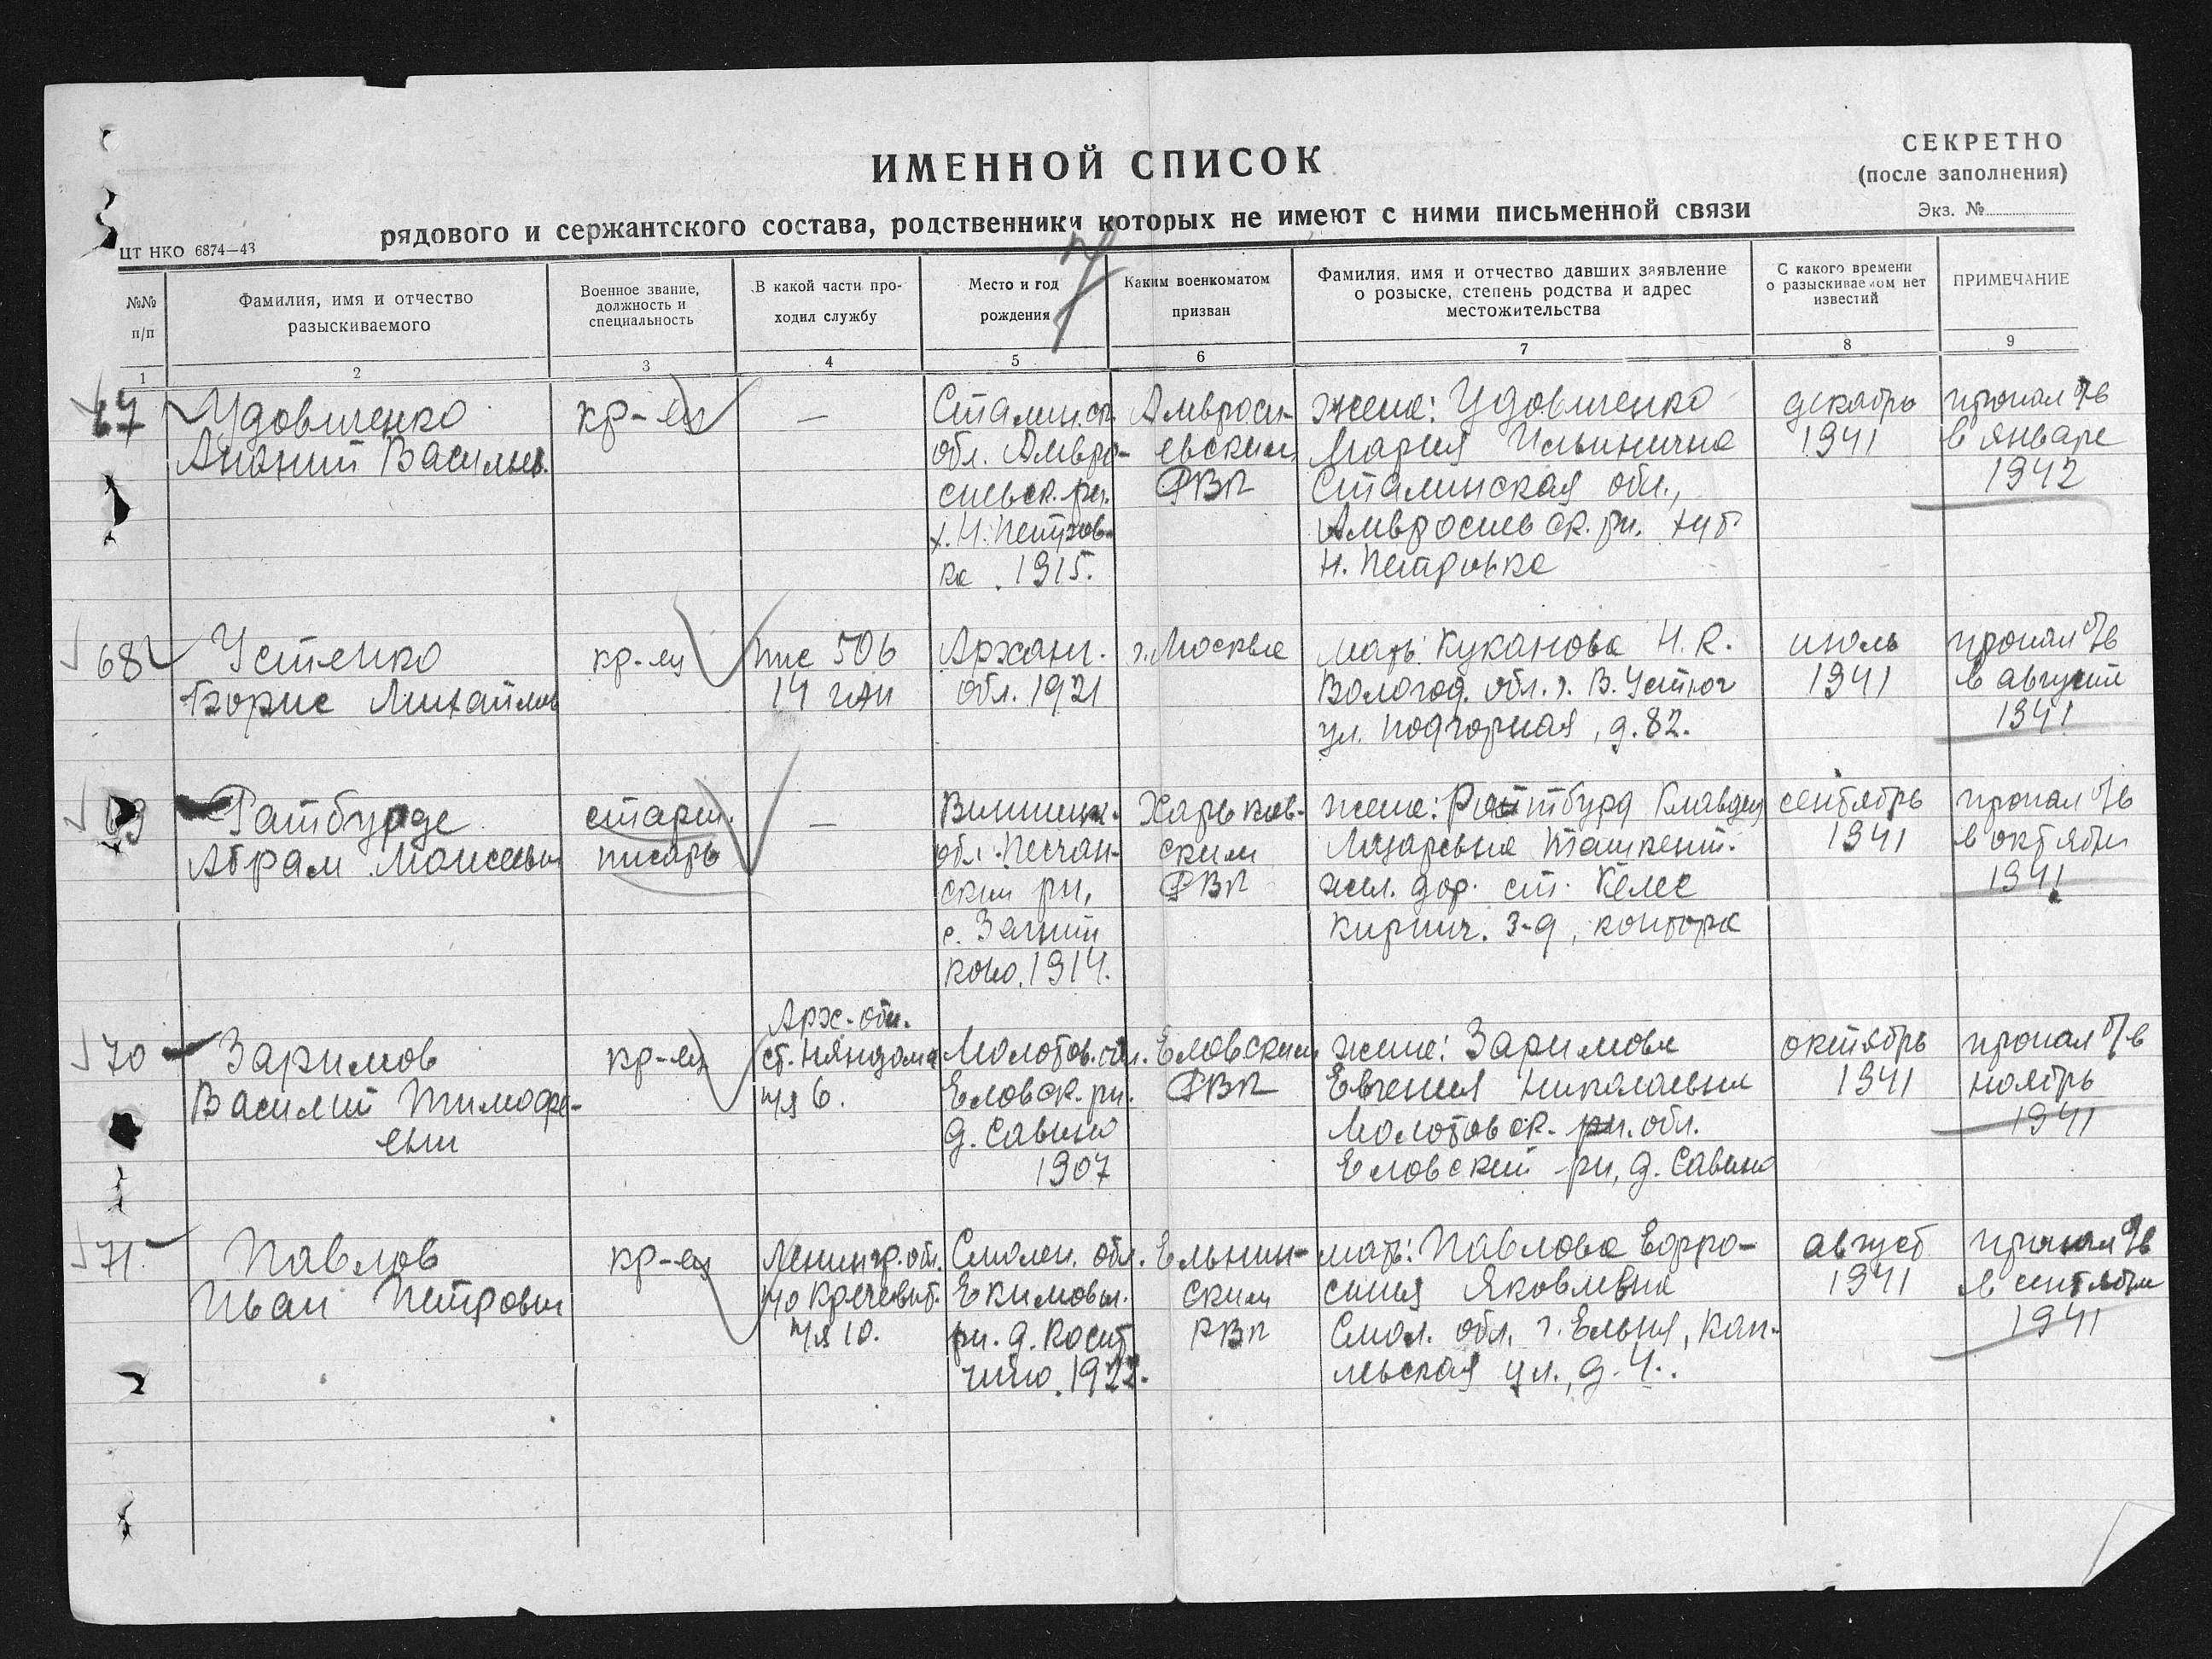 СЕКРЕТНО
(после заполнения)
Экз. №
ИМЕННОЙ СПИСОК
рядового и сержантского состава, родственники которых не имеют с ними письменной связи
ЦТ НКО 6874—43
№№ п/п
Фамилия, имя и отчество разыскиваемого
Военное звание, должность и специальность
В какой части проходил службу
Место и год рождения
Каким военкоматом призван
Фамилия, имя и отчество давших заявление о розыске, степень родства и адрес местожительства
С какого времени о разыскиваемом нет известий
ПРИМЕЧАНИЕ
1 2 3 4 5 6 7 8 9
67
Удовиченко
Ананий Васильев.
кр-ец
—
Сталинск.
обл. Амвро-
сиевск. рн.
х. Н. Петров-
ка . 1915.
Амвроси-
евским
РВК
жена: Удовиченко
Мария Ильинична
Сталинская обл.,
Амвросиевск. рн. хут.
Н. Петровка
декабрь
1941
пропал б/в
в январе
1942
68
Устенко
Борис Михайлов
кр-ец
ппс 506
14 гап
Арханг.
обл. 1921
г. Москва
мать: Куканова Н. К.
Вологод. обл. г. В. Устюг
ул. Подгорная, д. 82.
июль
1941
пропал б/в
в августе
1941
69
Ратбурде
Абрам Моисеевич
старш.
писарь
—
Винницк.
обл. Песчан-
ский рн,
с.
1914.
Харьков-
ским
РВК
жена: Клавдия
Лазаревна Ташкент.
жел. дор. ст. Келес
Кирпич. з-д, контора
сентябрь
1941
пропал б/в
в октябре
1941
70
Заримов
Василий Тимофе-
евич
кр-ец
Арх. обл.
ст. Няндома
п/я 6.
Молотов. обл.
Еловск. рн.
д. Савино
1907
Еловским
РВК
жена: Заримова
Евгения Николаевна
Молотовск. обл.
Еловский рн, д. Савино
октябрь
1941
пропал б/в
ноябрь
1941
71
Павлов
Иван Петрович
кр-ец
Ленингр. обл.
п/о Кречевиц.
п/я 10.
Смолен. обл.
Екимович.
рн. д.
1922.
Ельнин-
ским
РВК
мать: Павлова Ефро-
синия Яковлевна
Смол. обл. г. Ельня,
ул., д. 4.
август
1941
пропал б/в
в сентябре
1941